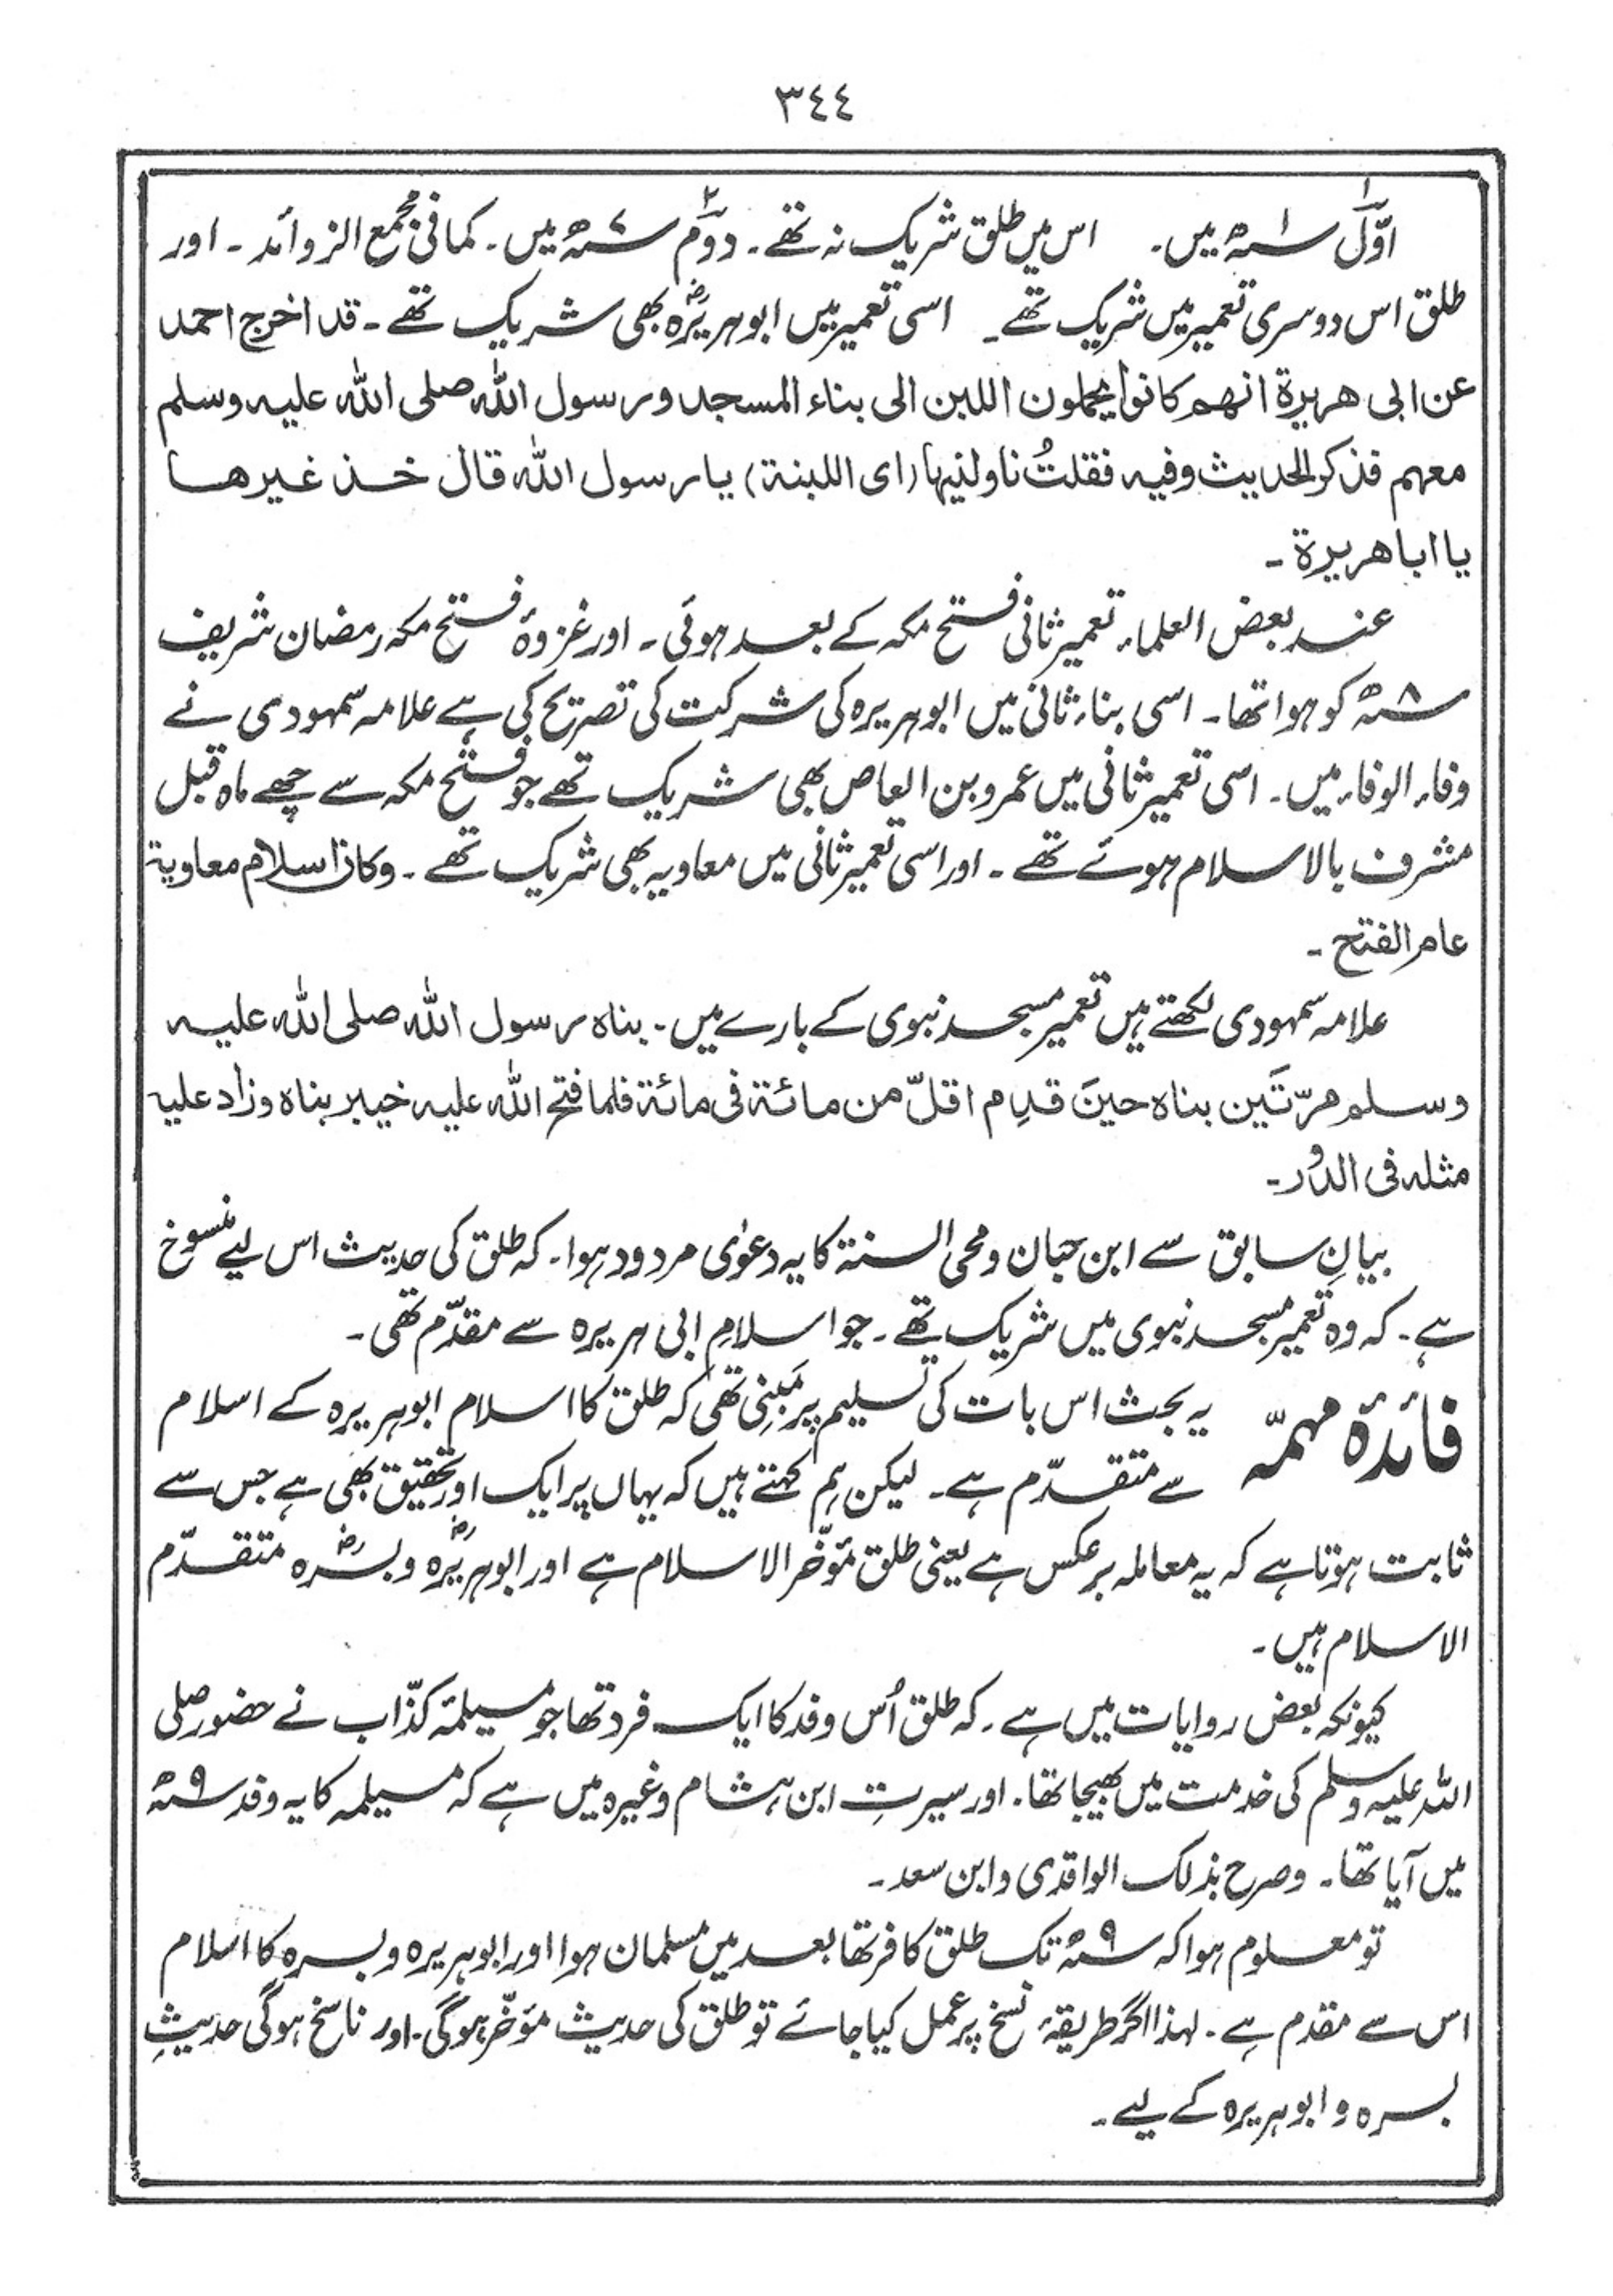 ٣٤٤
اوّل ۱ھ میں۔ اس میں طلق شریک نہ تھے۔ دوم ۷ھ میں۔ کما فی مجمع الزوائد۔ اور
طلق اس دوسری تعمیر میں شریک تھے۔ اسی تعمیر میں ابوہریرہؓ بھی شریک تھے۔ قد اخرج احمد
عن ابی ھریرۃ انھم کانوا یحملون اللبن الی بناء المسجد ورسول اللہ صلی اللہ علیہ وسلم
معہم فذکر الحدیث وفیہ فقلتُ ناولنیہا (ای اللبنۃ) یا رسول اللہ قال خذ غیرھا
یا ابا ھریرۃ۔
عند بعض العلماء تعمیر ثانی فتح مکہ کے بعد ہوئی۔ اور غزوۂ فتح مکہ رمضان شریف
۸ھ کو ہوا تھا۔ اسی بناء ثانی میں ابوہریرہ کی شرکت کی تصریح کی ہے علامہ سمہودی نے
وفاء الوفاء میں۔ اسی تعمیر ثانی میں عمرو بن العاص بھی شریک تھے جو فتح مکہ سے چھے ماہ قبل
مشرف بالاسلام ہوئے تھے۔ اور اسی تعمیر ثانی میں معاویہ بھی شریک تھے۔ وکان اسلام معاویۃ
عام الفتح۔
علامہ سمہودی لکھتے ہیں تعمیر مسجد نبوی کے بارے میں۔ بناہ رسول اللہ صلی اللہ علیہ
وسلم مرّتَین بناہ حینَ قدِم اقلّ من مائۃ فی مائۃ فلما فتح اللہ علیہ خیبر بناہ وزاد علیہ
مثلہ فی الدُّور۔
بیانِ سابق سے ابن حبان ومحی السنۃ کا یہ دعوٰی مردود ہوا۔ کہ طلق کی حدیث اس لیے منسوخ
ہے۔ کہ وہ تعمیر مسجد نبوی میں شریک تھے۔ جو اسلامِ ابی ہریرہ سے مقدّم تھی۔
فائدۂ مہمّہ یہ بحث اس بات کی تسلیم پر مَبنِی تھی کہ طلق کا اسلام ابوہریرہ کے اسلام
سے متقدّم ہے۔ لیکن ہم کہتے ہیں کہ یہاں پر ایک اور تحقیق بھی ہے جس سے
ثابت ہوتا ہے کہ یہ معاملہ برعکس ہے یعنی طلق مؤخّر الاسلام ہے اور ابوہریرہؓ و بسرہؓ متقدّم
الاسلام ہیں۔
کیونکہ بعض روایات میں ہے۔ کہ طلق اُس وفد کا ایک فرد تھا جو مسیلمۂ کذّاب نے حضور صلی
اللہ علیہ وسلم کی خدمت میں بھیجا تھا۔ اور سیرتِ ابن ہشام وغیرہ میں ہے کہ مسیلمہ کا یہ وفد ۹ھ
میں آیا تھا۔ وصرح بذلک الواقدی وابن سعد۔
تو معلوم ہوا کہ ۹ھ تک طلق کافر تھا بعد میں مسلمان ہوا اور ابوہریرہ و بسرہ کا اسلام
اس سے مقدم ہے۔ لہذا اگر طریقۂ نسخ پر عمل کیا جائے تو طلق کی حدیث مؤخّر ہوگی۔ اور ناسخ ہوگی حدیثِ
بسرہ و ابوہریرہ کے لیے۔